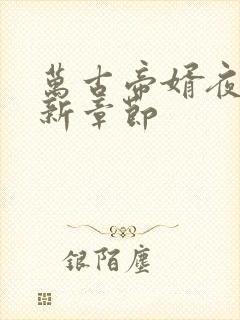 萬古帝婿夜
新章節
银陌塵